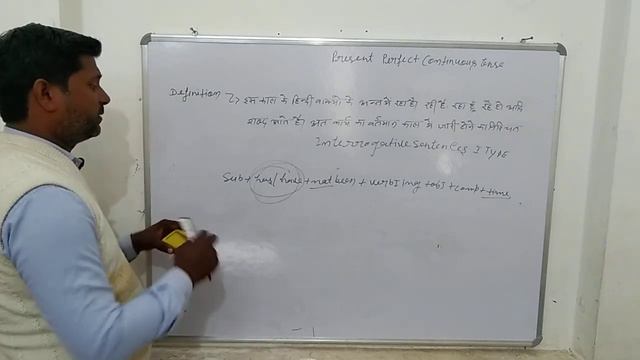 Present Perfect Continuous Tense
Definition => इस काल के हिन्दी वाक्यो के अन्त में रहा है। रही है रहा हूँ रहे हो आदि
शब्द आते है। अतः कार्य का वर्तमान काल में जारी होने का निश्चित
Interrogative Sentences I TYPE
Sub + has/have + not been + verb I ing + obj + comp + time